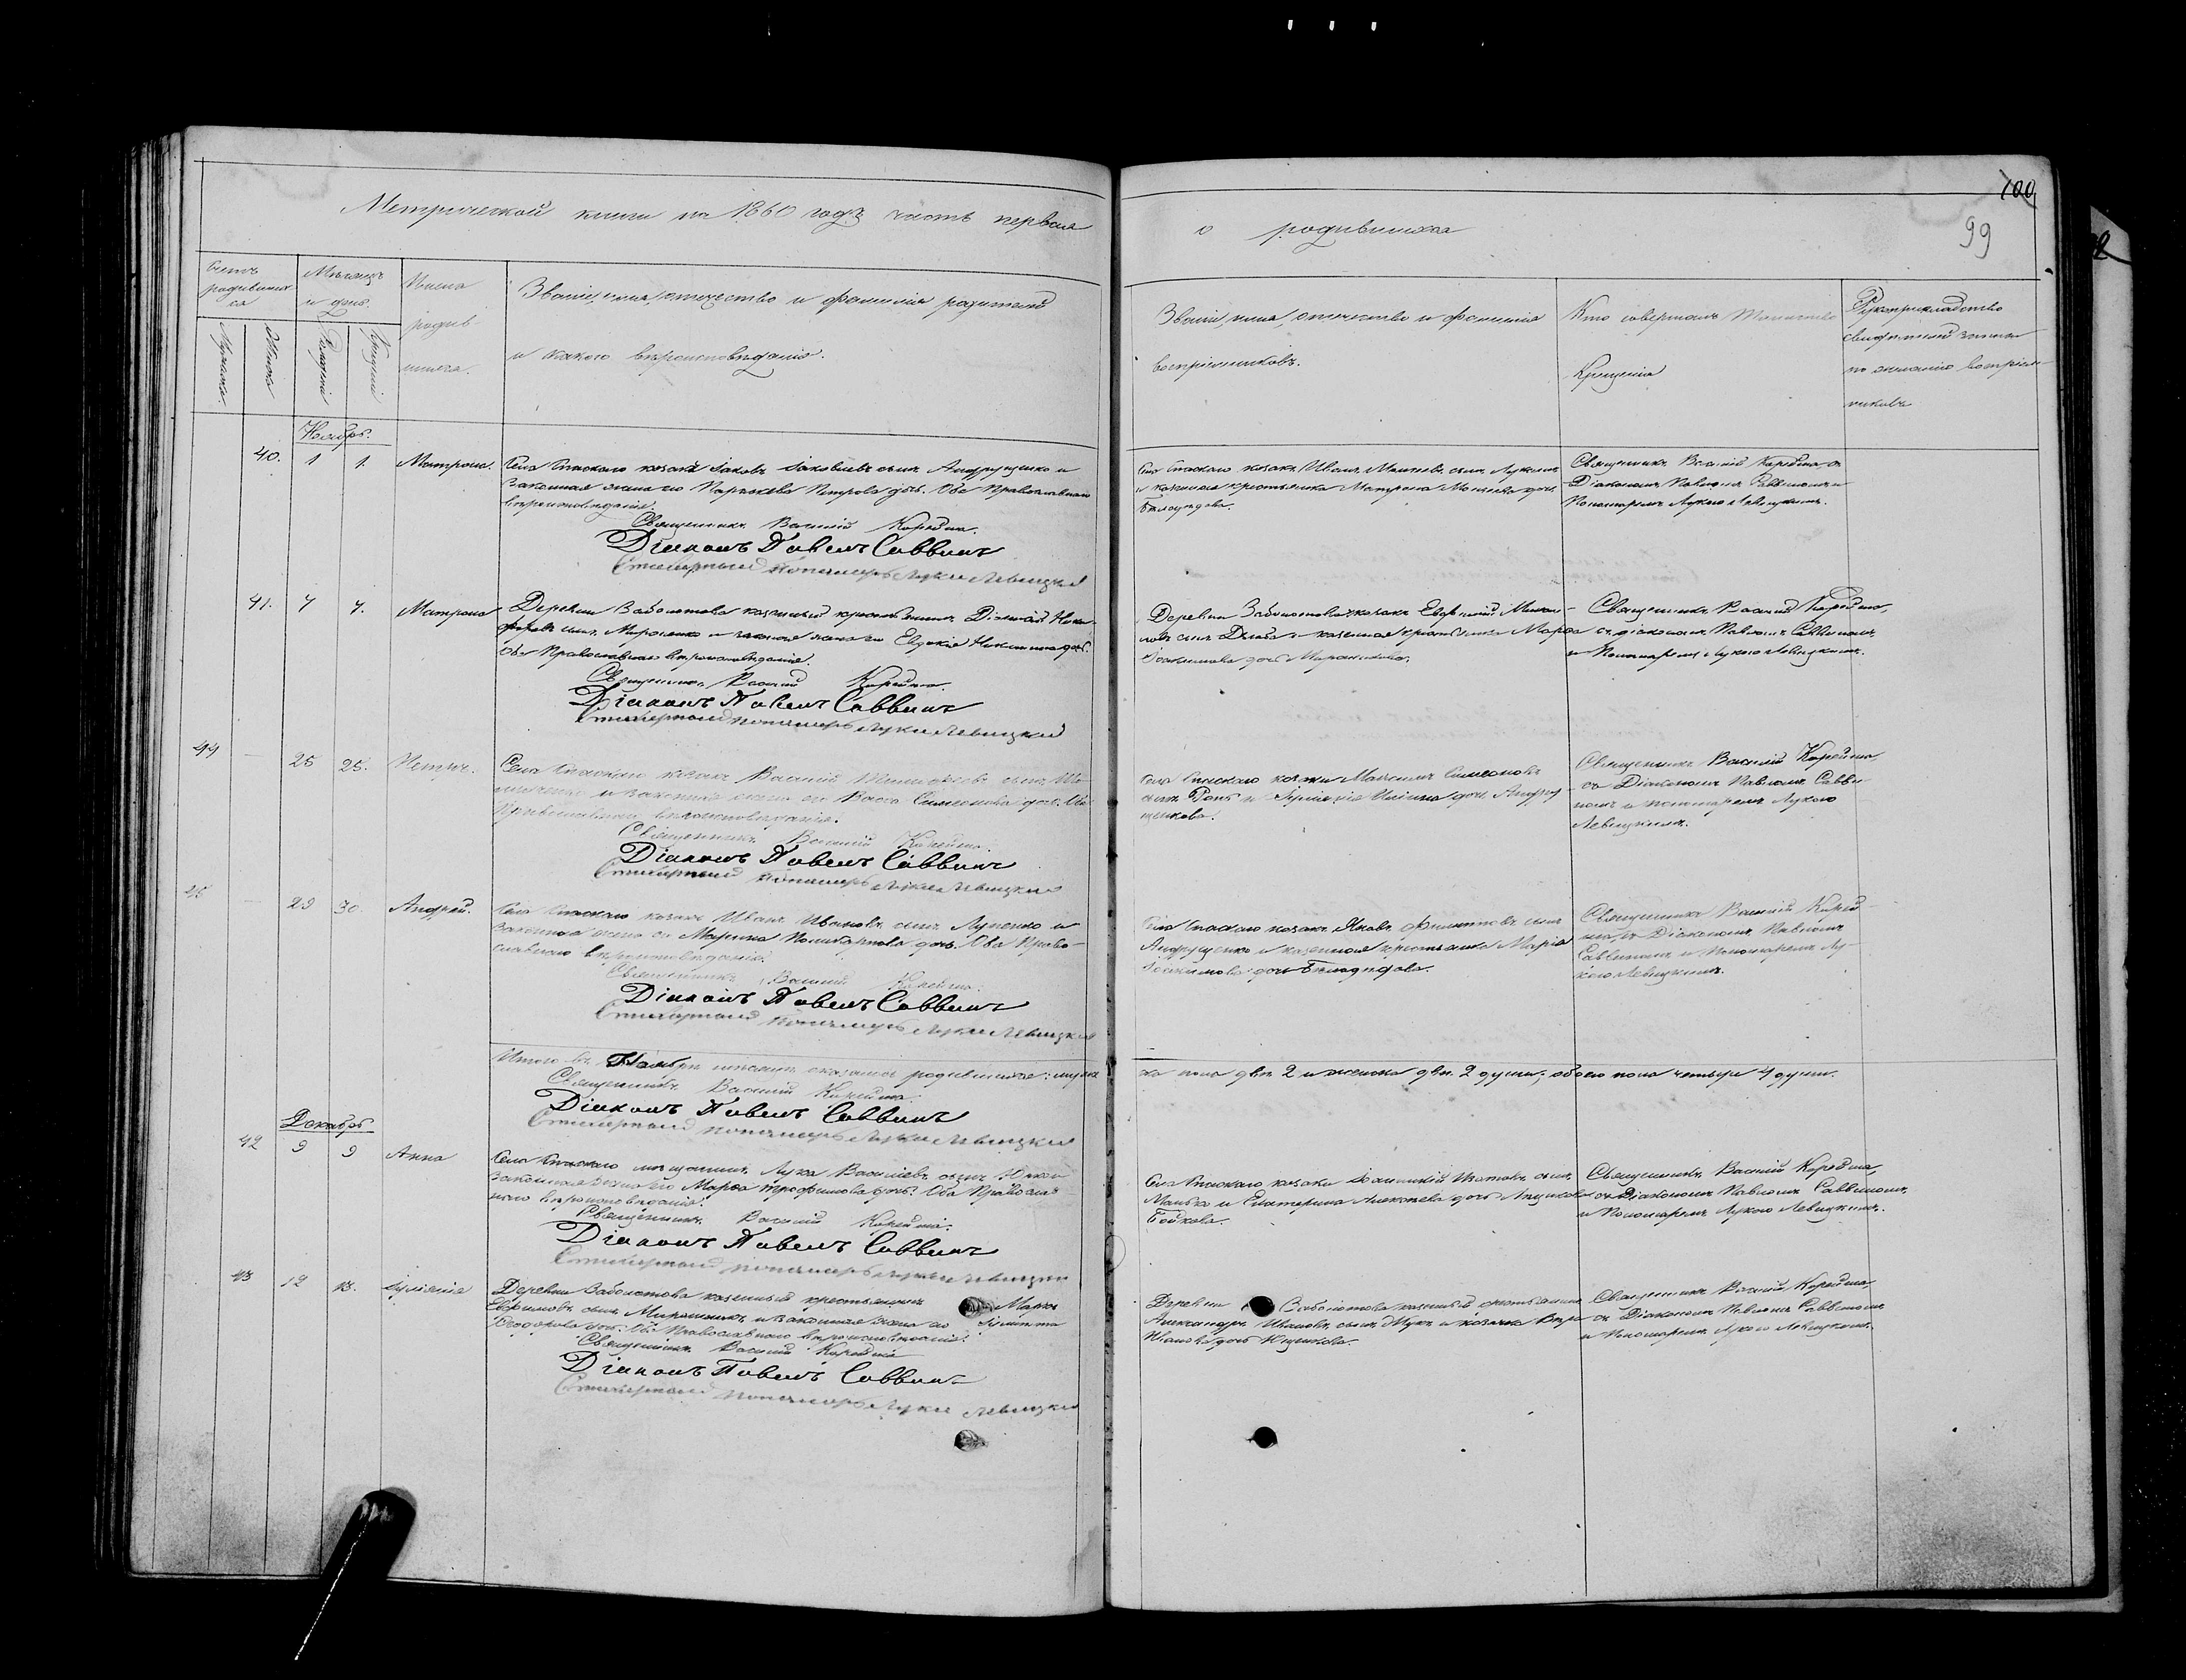 100
99
Метрической книги на 1860 годъ часть первая
о родившихся
Счетъ родившихся
Мѣсяцъ и день.
Имена родившихся.
Званіе, имя, отчество и фамилія родителей
и какого вѣроисповѣданія.
Званіе, имя, отчество и фамилія
воспріемниковъ.
Кто совершалъ Таинство
Крещенія
Рукоприкладство
свидѣтелей записи
по желанію
Мужеска.
Женска
Рожденія
Крещенія
Ноябрь.
40. 1 1. Матрона.
Села Спаскаго козакъ Іаковъ Іаковлевъ сынъ Андрущенко и
законная жена его Параскева Петрова дочь. Оба Православнаго
вѣроисповѣданія.
Священникъ Василій Корейша.
Діаконъ Павелъ Саввинъ
Стихарный пономарь Лука Левицкій
Села Спаскаго козакъ Иванъ сынъ
и казенная крестьянка Матрона дочь
Священникъ Василій Корейша съ
Діакономъ Павломъ Саввинымъ и
Пономаремъ Лукою Левицкимъ.
41. 7 7. Матрона
Деревни Заболотова казенный крестьянинъ
сынъ Мироненко и законная жена его Евдокія Никитина дочь.
Оба Православнаго вѣроисповѣданія.
Священникъ Василій Корейша.
Діаконъ Павелъ Саввинъ
Стихарный пономарь Лука Левицкій
Деревни Заболотова козакъ Евфимій
сынъ и казенная крестьянка Марфа
дочь
Священникъ Василій Корейша,
съ діакономъ Павломъ Саввинымъ
и Пономаремъ Лукою Левицкимъ.
44 – 25 25. Петръ.
Села Спаскаго козакъ Василій сынъ
и законная жена его Васса Симеонова дочь. Оба
Православнаго вѣроисповѣданія.
Священникъ Василій Корейша.
Діаконъ Павелъ Саввинъ
Стихарный пономарь Лука Левицкій
Села Спаскаго козаки Максимъ Симеоновъ
сынъ и Ильина дочь Андру-
щенкова.
Священникъ Василій Корейша
съ Діакономъ Павломъ Савви-
нымъ и пономаремъ Лукою
Левицкимъ.
45 – 29 30. Андрей.
Села Спаскаго козакъ Иванъ Ивановъ сынъ Луценко и
законная жена его Марина Поликарпова дочь. Оба Право-
славнаго вѣроисповѣданія.
Священникъ Василій Корейша.
Діаконъ Павелъ Саввинъ
Стихарный пономарь Лука Левицкій
Села Спаскаго козакъ Яковъ Филиповъ сынъ
Андрущенко и казенная крестьянка Марія
дочь
Священникъ Василій Корей-
ша съ Діакономъ Павломъ
Саввинымъ и Пономаремъ Лу-
кою Левицкимъ.
Итого въ Ноябрѣ мѣсяцѣ оказалось родившихся: муже-
ска пола два 2 и женска двѣ 2 души; обоего пола четыре 4 души.
Священникъ Василій Корейша.
Діаконъ Павелъ Саввинъ
Стихарный пономарь Лука Левицкій
Декабрь
42 9 9 Анна
Села Спаскаго мѣщанинъ Лука Василіевъ сынъ и
законная жена его Марфа Трофимова дочь. Оба Православ-
наго вѣроисповѣданія.
Священникъ Василій Корейша.
Діаконъ Павелъ Саввинъ
Стихарный пономарь Лука Левицкій
Села Спаскаго козаки сынъ
и Екатерина Алексѣева дочь
Бойкова.
Священникъ Василій Корейша,
съ Діакономъ Павломъ Саввинымъ,
и Пономаремъ Лукою Левицкимъ.
43 12 13. Іуліанія
Деревни Заболотова казенный крестьянинъ Марко
Евфимовъ сынъ и законная жена его
Ѳеодорова дочь. Оба Православнаго вѣроисповѣданія.
Священникъ Василій Корейша
Діаконъ Павелъ Саввинъ
Стихарный пономарь Лука Левицкій
Деревни Заболотова казенный крестьянинъ
Александръ Ивановъ сынъ и козачка Вѣра
Иванова дочь Ющенкова.
Священникъ Василій Корейша,
съ Діакономъ Павломъ Саввинымъ
и Пономаремъ Лукою Левицкимъ.